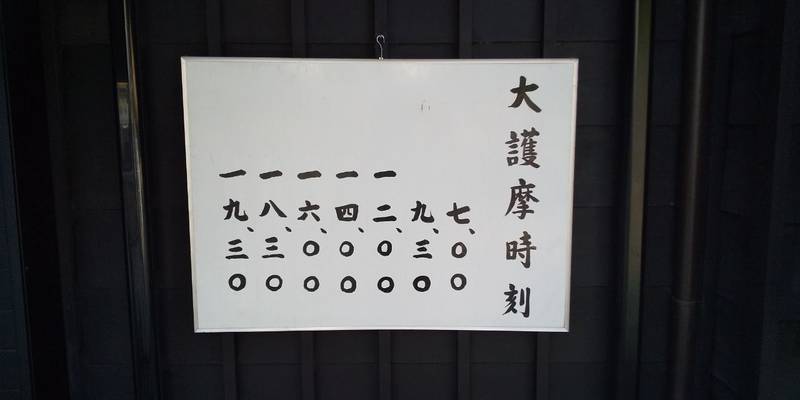 大護摩時刻
七、〇〇
九、三〇
一二、〇〇
一四、〇〇
一六、〇〇
一八、三〇
一九、三〇